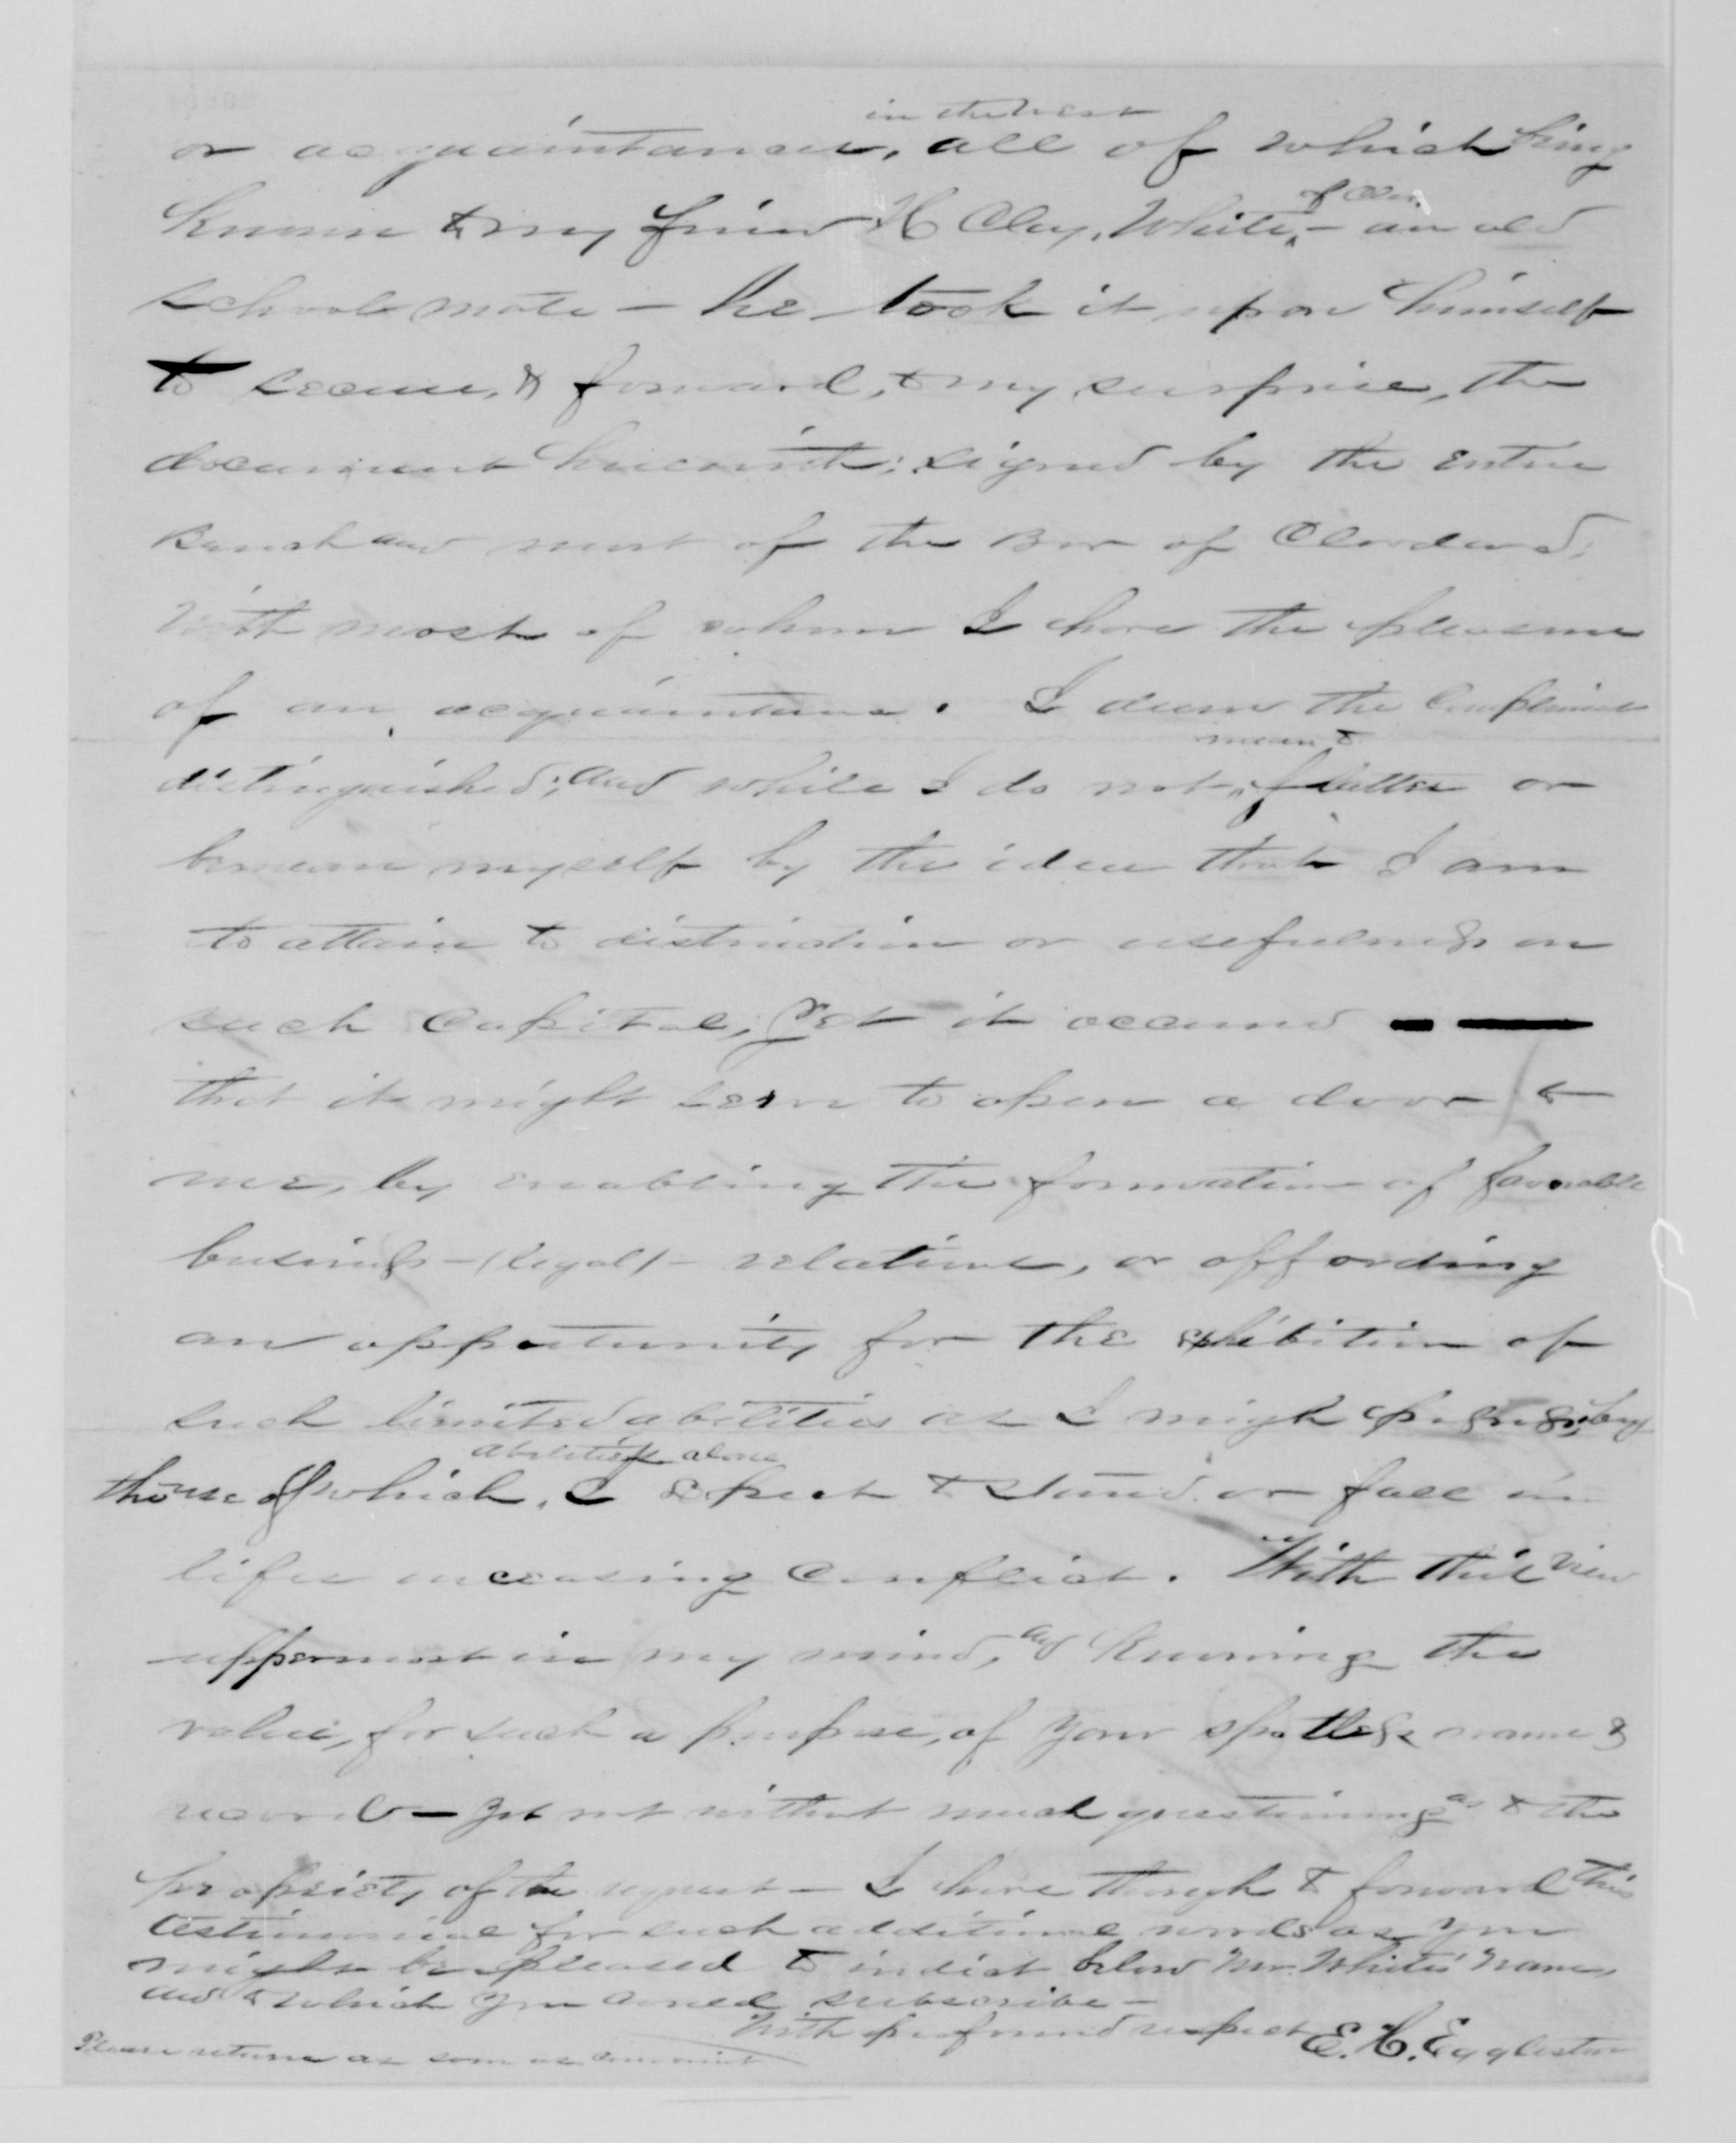 in the west
or acquaintances, all of which being
of Clev.
known to my friend H Clay White, – an old
school mate – he took it upon himself
to secure, & forward, to my surprise, the
document herewith; signed by the entire
Bench and most of the Bar of Cleveland;
with most of whom I have the pleasure
of an acquaintance. I deem the compliment
mean to
distinguished; and while I do not flatter or
bemean myself by the idea that I am
to attain to distinction or usefulness on
such capital; yet it occurred
that it might serve to open a door to
me, by enabling the formation of favorable
business – (legal) – relations, or affording
an opportunity for the exhibition of
such limited abilities as I might possess; by
abilities alone
the use of which, I expect to stand or fall in
life's unceasing conflict. With this view
uppermost in my mind, and knowing the
value, for such a purpose, of your spotless name &
record – yet not without much questioning as to the
propriety of the request – I have though to forward this
testimonial for such additional words as you
might be pleased to indict below Mr. White's name,
and to which you would subscribe –
With profound respect E. H. Eggleston
Please return as soon as convenient